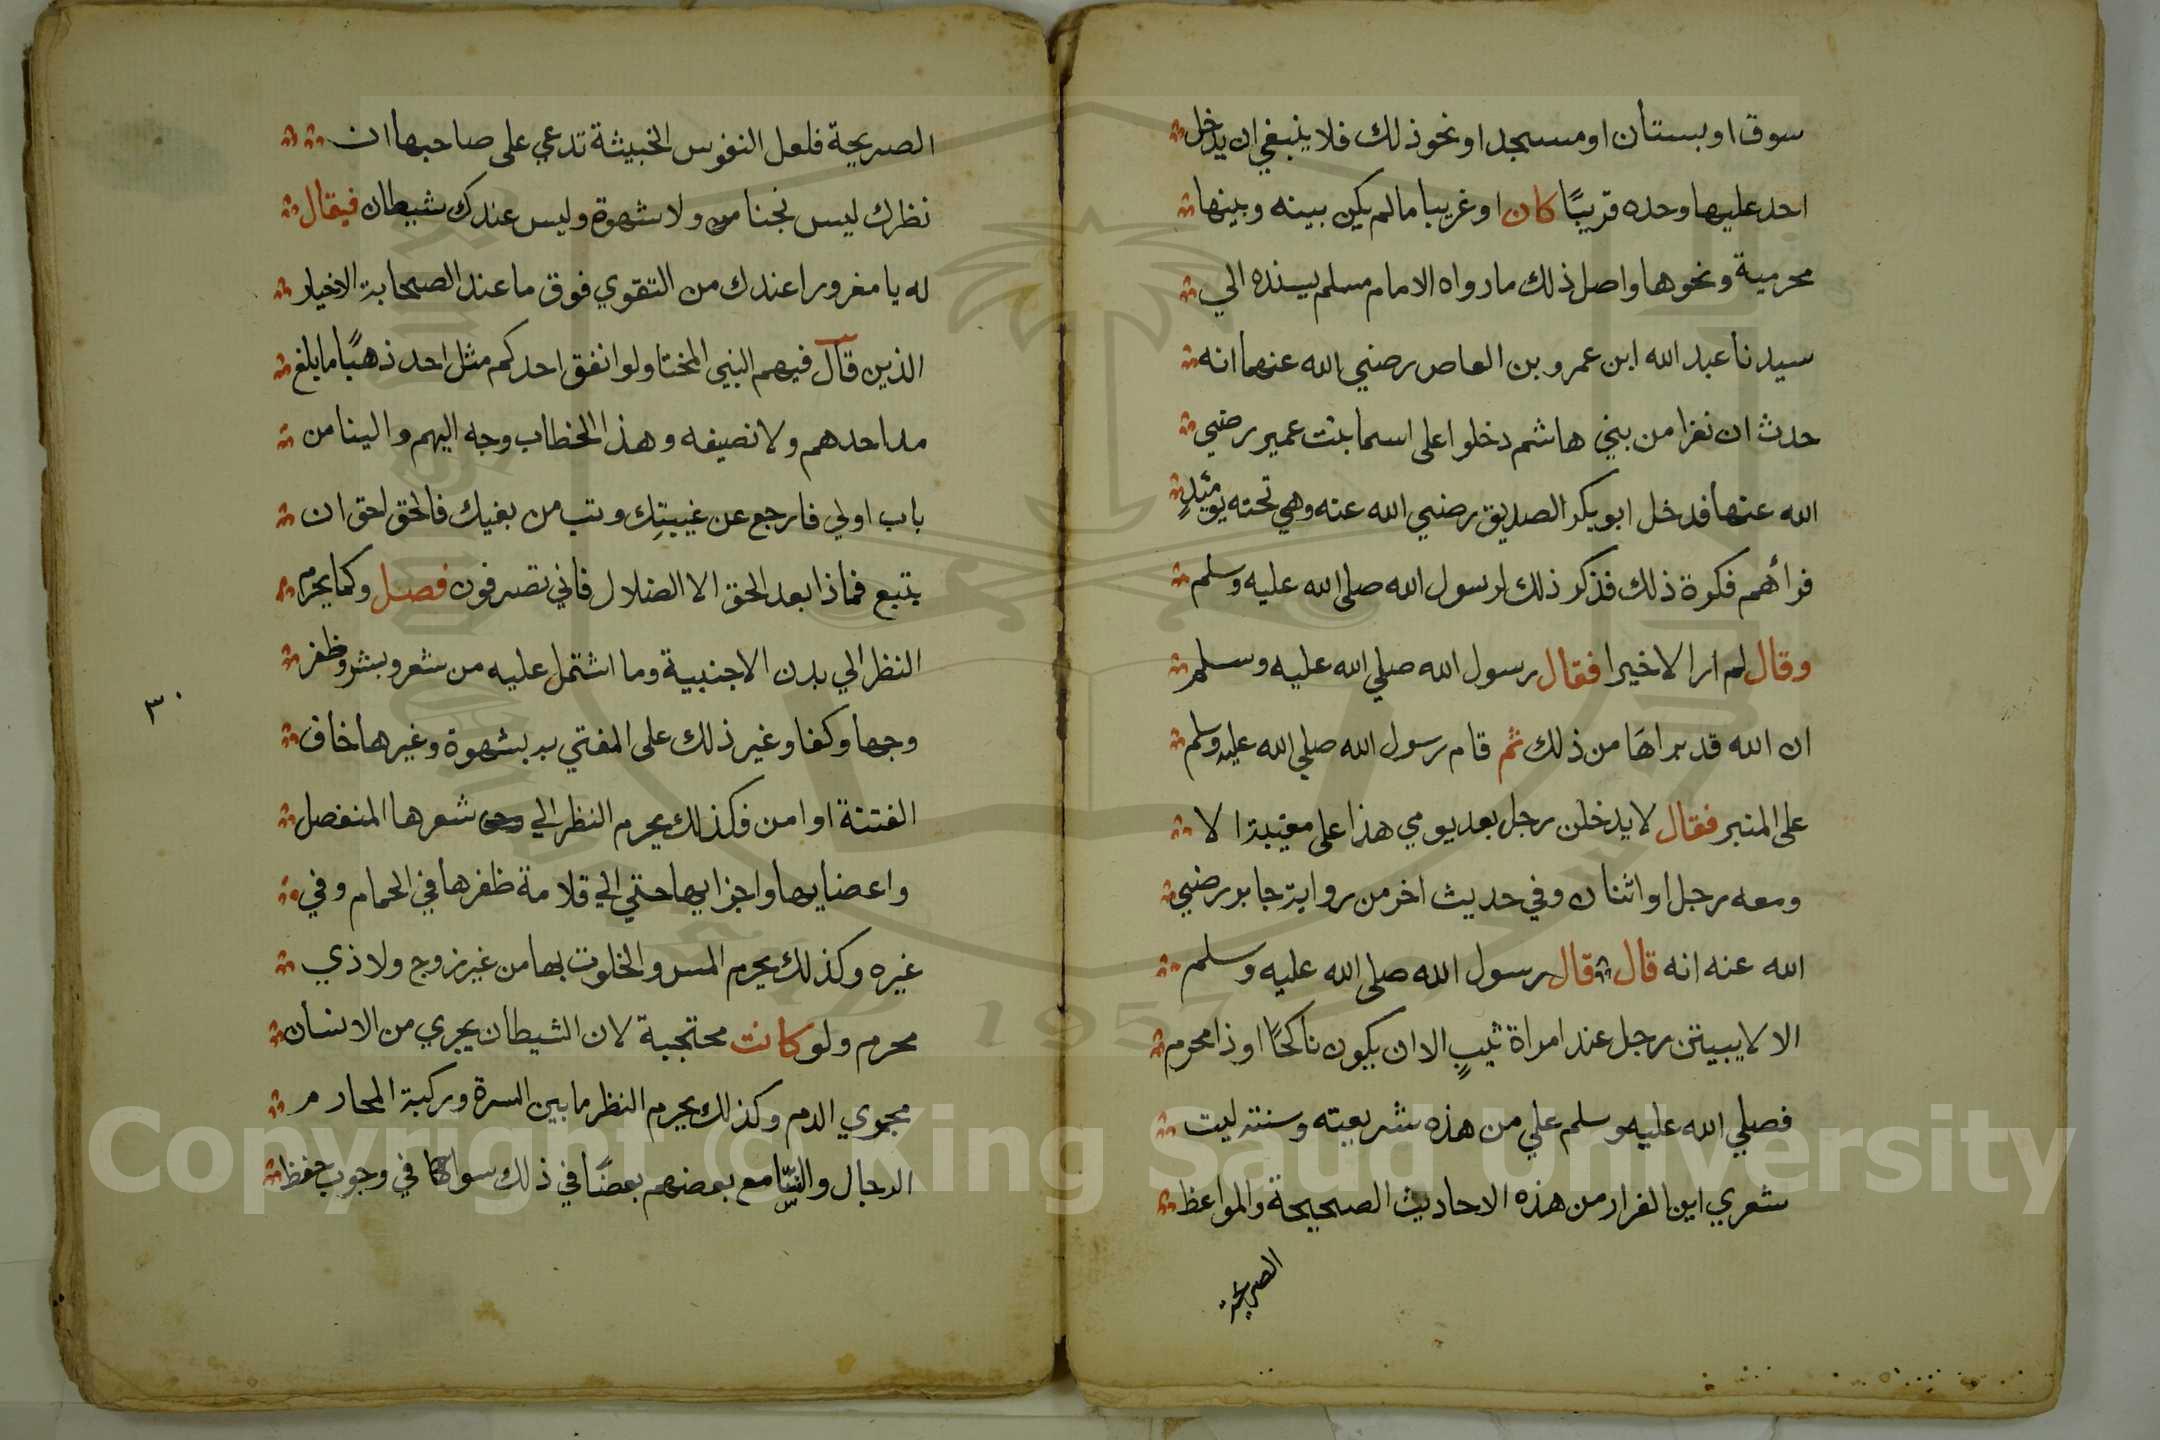 سوق او بستان او مسجد او نحو ذلك فلا ينبغي ان يدخل
احد عليها وحده قريبًا كان او غريبا ما لم يكن بينه وبينها
محرمية ونحوها واصل ذلك ما رواه الامام مسلم بسنده الي
سيدنا عبد الله ابن عمرو بن العاص رضي الله عنهما انه
حدث ان نفرا من بني هاشم دخلوا على اسما بنت عمير رضي
الله عنها فدخل ابو بكر الصديق رضي الله عنه وهي تحته يومئذٍ
فرأهم فكرة ذلك فذكر ذلك لرسول الله صلى الله عليه وسلم
وقال لم ارا الا خيرا فقال رسول الله صلي الله عليه وسلم
ان الله قد براهَا من ذلك ثم قام رسول الله صلي الله عليه وسلم
على المنبر فقال لا يدخلن رجل بعد يومي هذا على مغيبة الا
ومعه رجل او اثنان وفي حديث اخر من رواية جابر رضي
الله عنه انه قال قال رسول الله صلى الله عليه وسلم
الا لا يبيتن رجل عند امراة ثيبٍ الا ان يكون ناكحًا او ذا محرم
فصلي الله عليه وسلم علي من هذه شريعته وسنته ليت
شعري اين الفرار من هذه الاحاديث الصحيحة والمواعظ
الصريحة
الصريحة فلعل النفوس الخبيثة تدعي على صاحبها ان
نظرك ليس نجنا من ولا شهوة وليس عندك شيطان فيقال
له يا مغرورا عندك من التقوي فوق ما عند الصحابة الاخيار
الذين قال فيهم النبي المختا ولو انفق احدكم مثل احد ذهبًا ما بلغ
مد احدهم ولا نصيفه وهذا الخطاب وجه اليهم والينا من
باب اولي فارجع عن غيبتِك وتب من بغيك فالحق احق ان
يتبع فماذا بعد الحق الا الضلال فاني تصرفون فصل وكما يحرم
النظر الي بدن الاجنبية وما اشتمل عليه من شعر وبشر وظفر
وجها وكفا وغير ذلك على المفتي به بشهوة وغيرها خاف
الفتنة او امن فكذلك يحرم النظر الي شعرها المنفصل
واعضايها واجزايها حتي الي قلامة ظفرها في الحمام وفي
غيره وكذلك يحرم المس والخلوت بها من غير زوج ولا ذي
محرم ولو كانت محتجبة لان الشيطان يجري من الانسان
مجري الدم وكذلك يحرم النظر ما بين السرة وركبة المحارم
الرجال والنسا مع بعضهم بعضًا في ذلك سوا في وجوب حفظ
٣٠
1957
Copyright © King Saud University